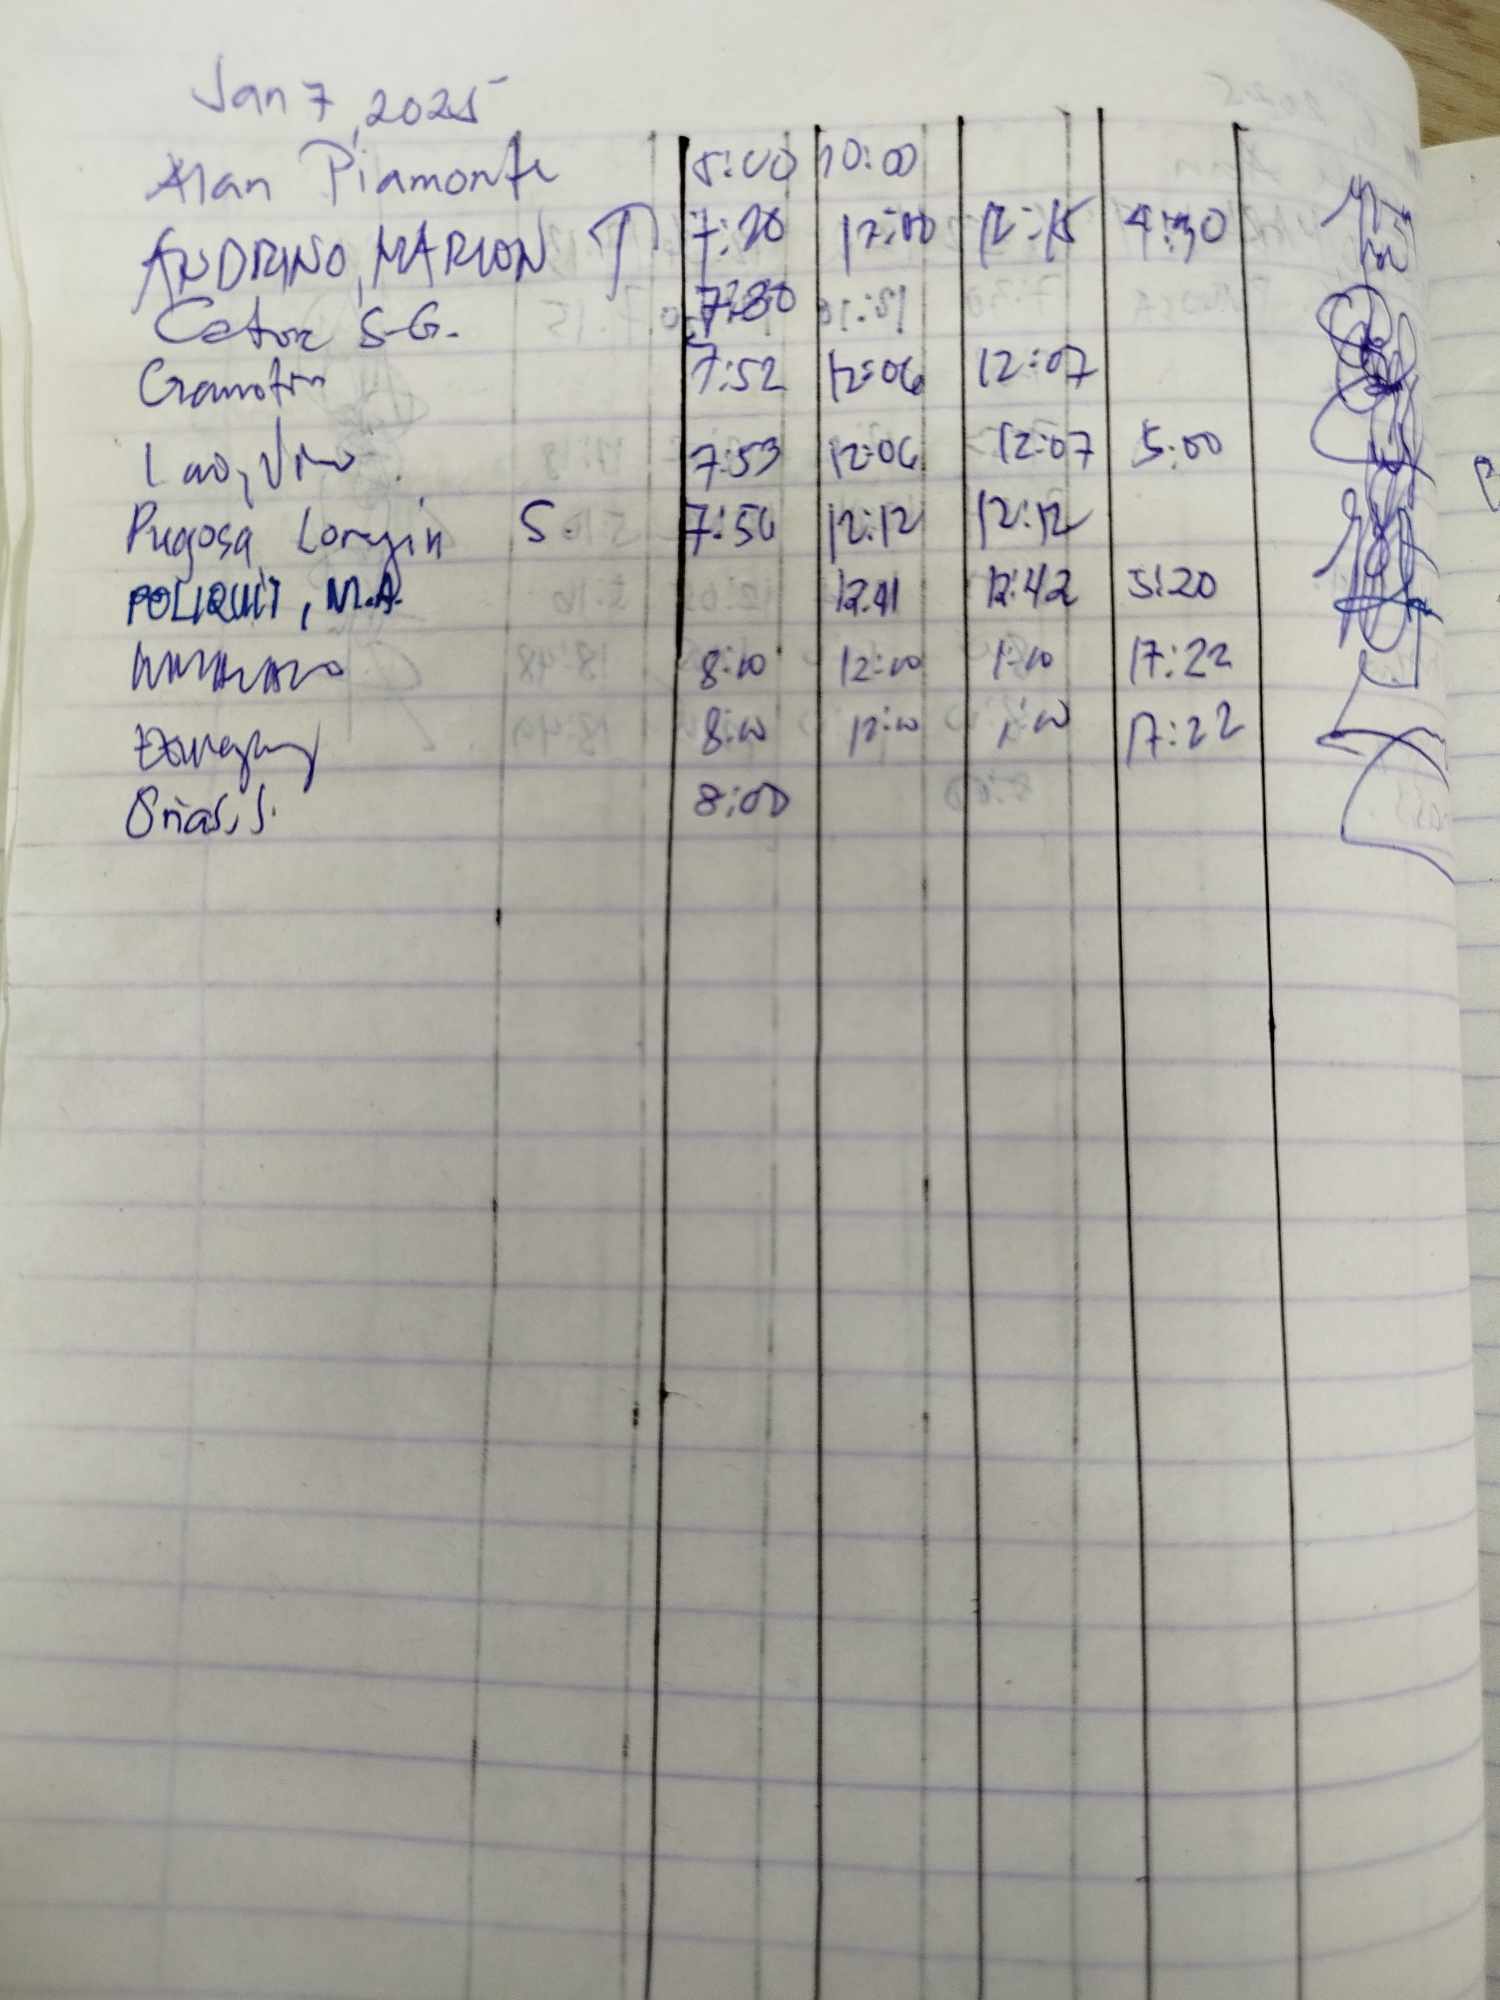 Jan 7, 2025
Alan Piamonte 8:00 10:00
ANDRINO, MARION T 7:20 12:00 12:15 4:30
Cator S.G. 7:30
7:52 12:06 12:07
Lao, 7:53 12:06 12:07 5:00
Pugosa, Loregin S. 7:56 12:12 12:12
POLIQUIT, M.A. 12:41 12:42 5:20
8:00 12:00 1:00 17:22
8:00 12:00 1:00 17:22
Oñas, S. 8:00